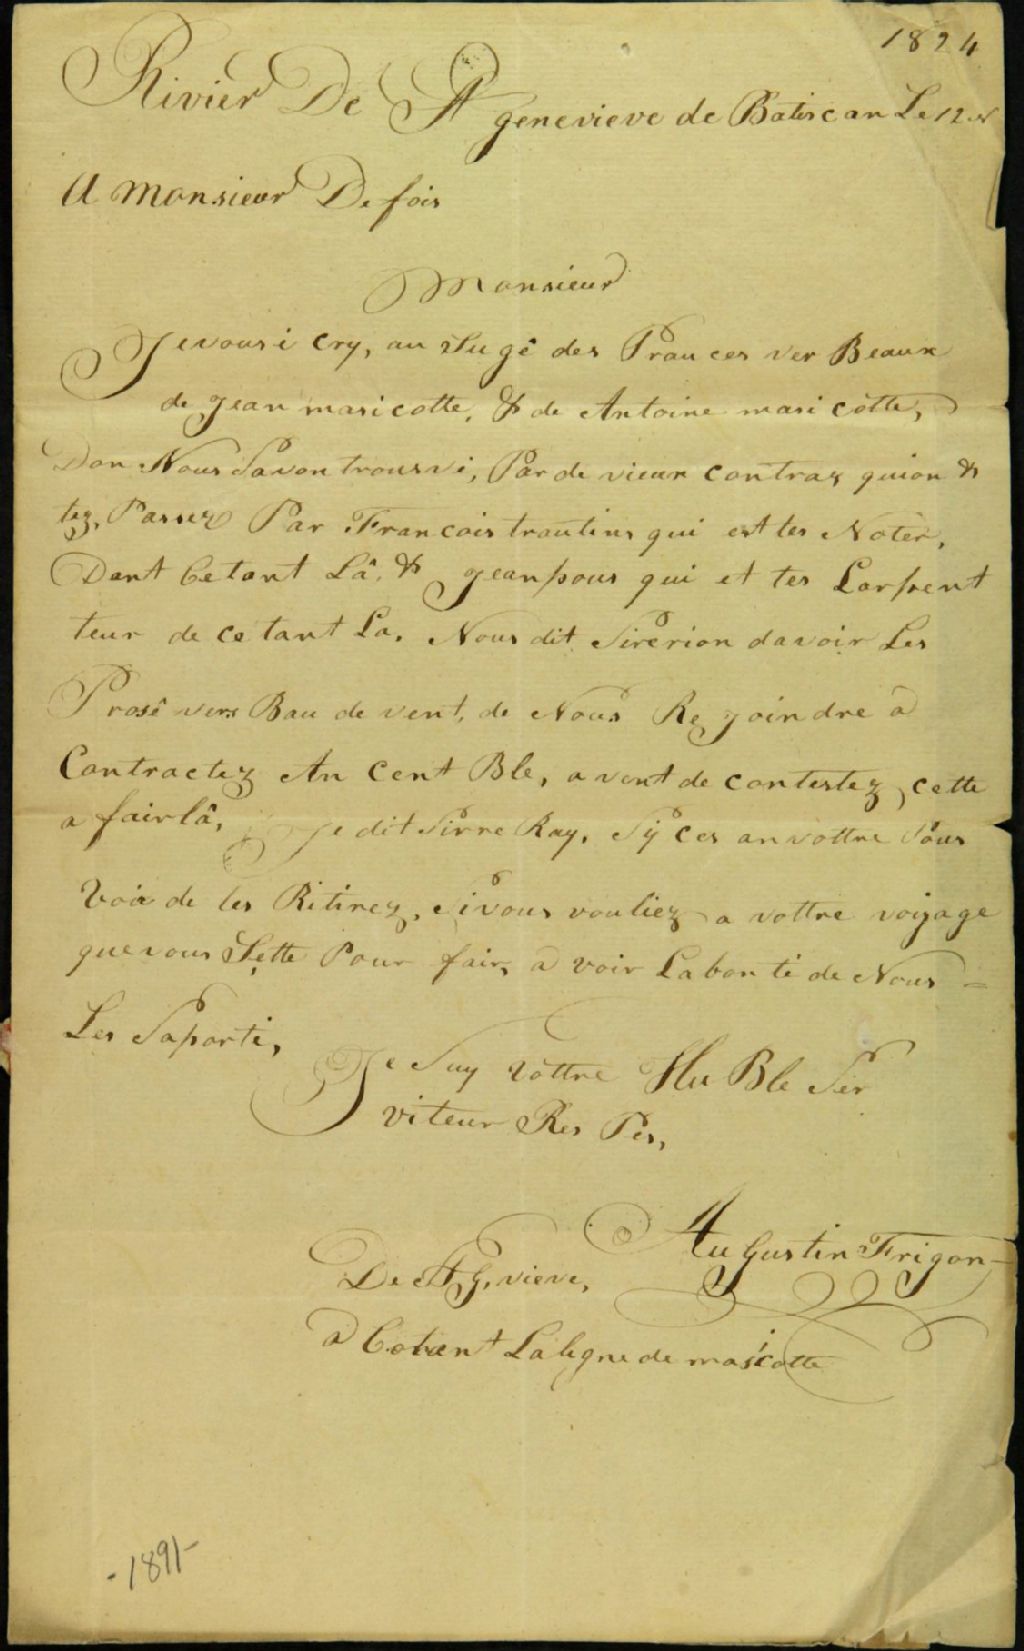 1824
Rivier De St genevieve de Batiscan Le 12
A Monsieur Defois
Monsieur
Je vous i cry, au Sugê des Prauces ver Beaux
de Jean maricotte, & de Antoine mari cotte,
Don Nous Savon trouvi, Par de vieux contraz quion &
tez, Passez Par Francois trautins qui est les Noter,
Dant Cetant Lâ, & Jean pous qui et tes Larpent
teur de ce tant La. Nous dit Sirerion davoir Les
Prosê vers Bau de vent, de Nous Re joindre a
Contractez An Cent Ble, avent de contestez cette
a fairlâ, Je dit Sirre Ray, Sy ces an vottre Pous
Voir de les Ritirez, Si vous vouliez a vottre voyage
que vous Sette Pour fair, a voir La bon ti de Nous =
Les Saporti,
Je Suy Vottre Hu Ble Ser
viteur Res Pes,
Augustin Frigon
De St G. vieve,
a Cotant La legne de masicotte
-1891-